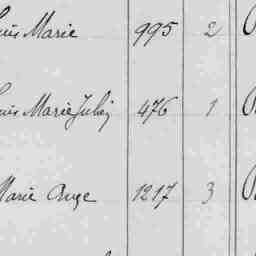 Marie 995 2
Marie Julien 476 1
Marie Ange 1217 3